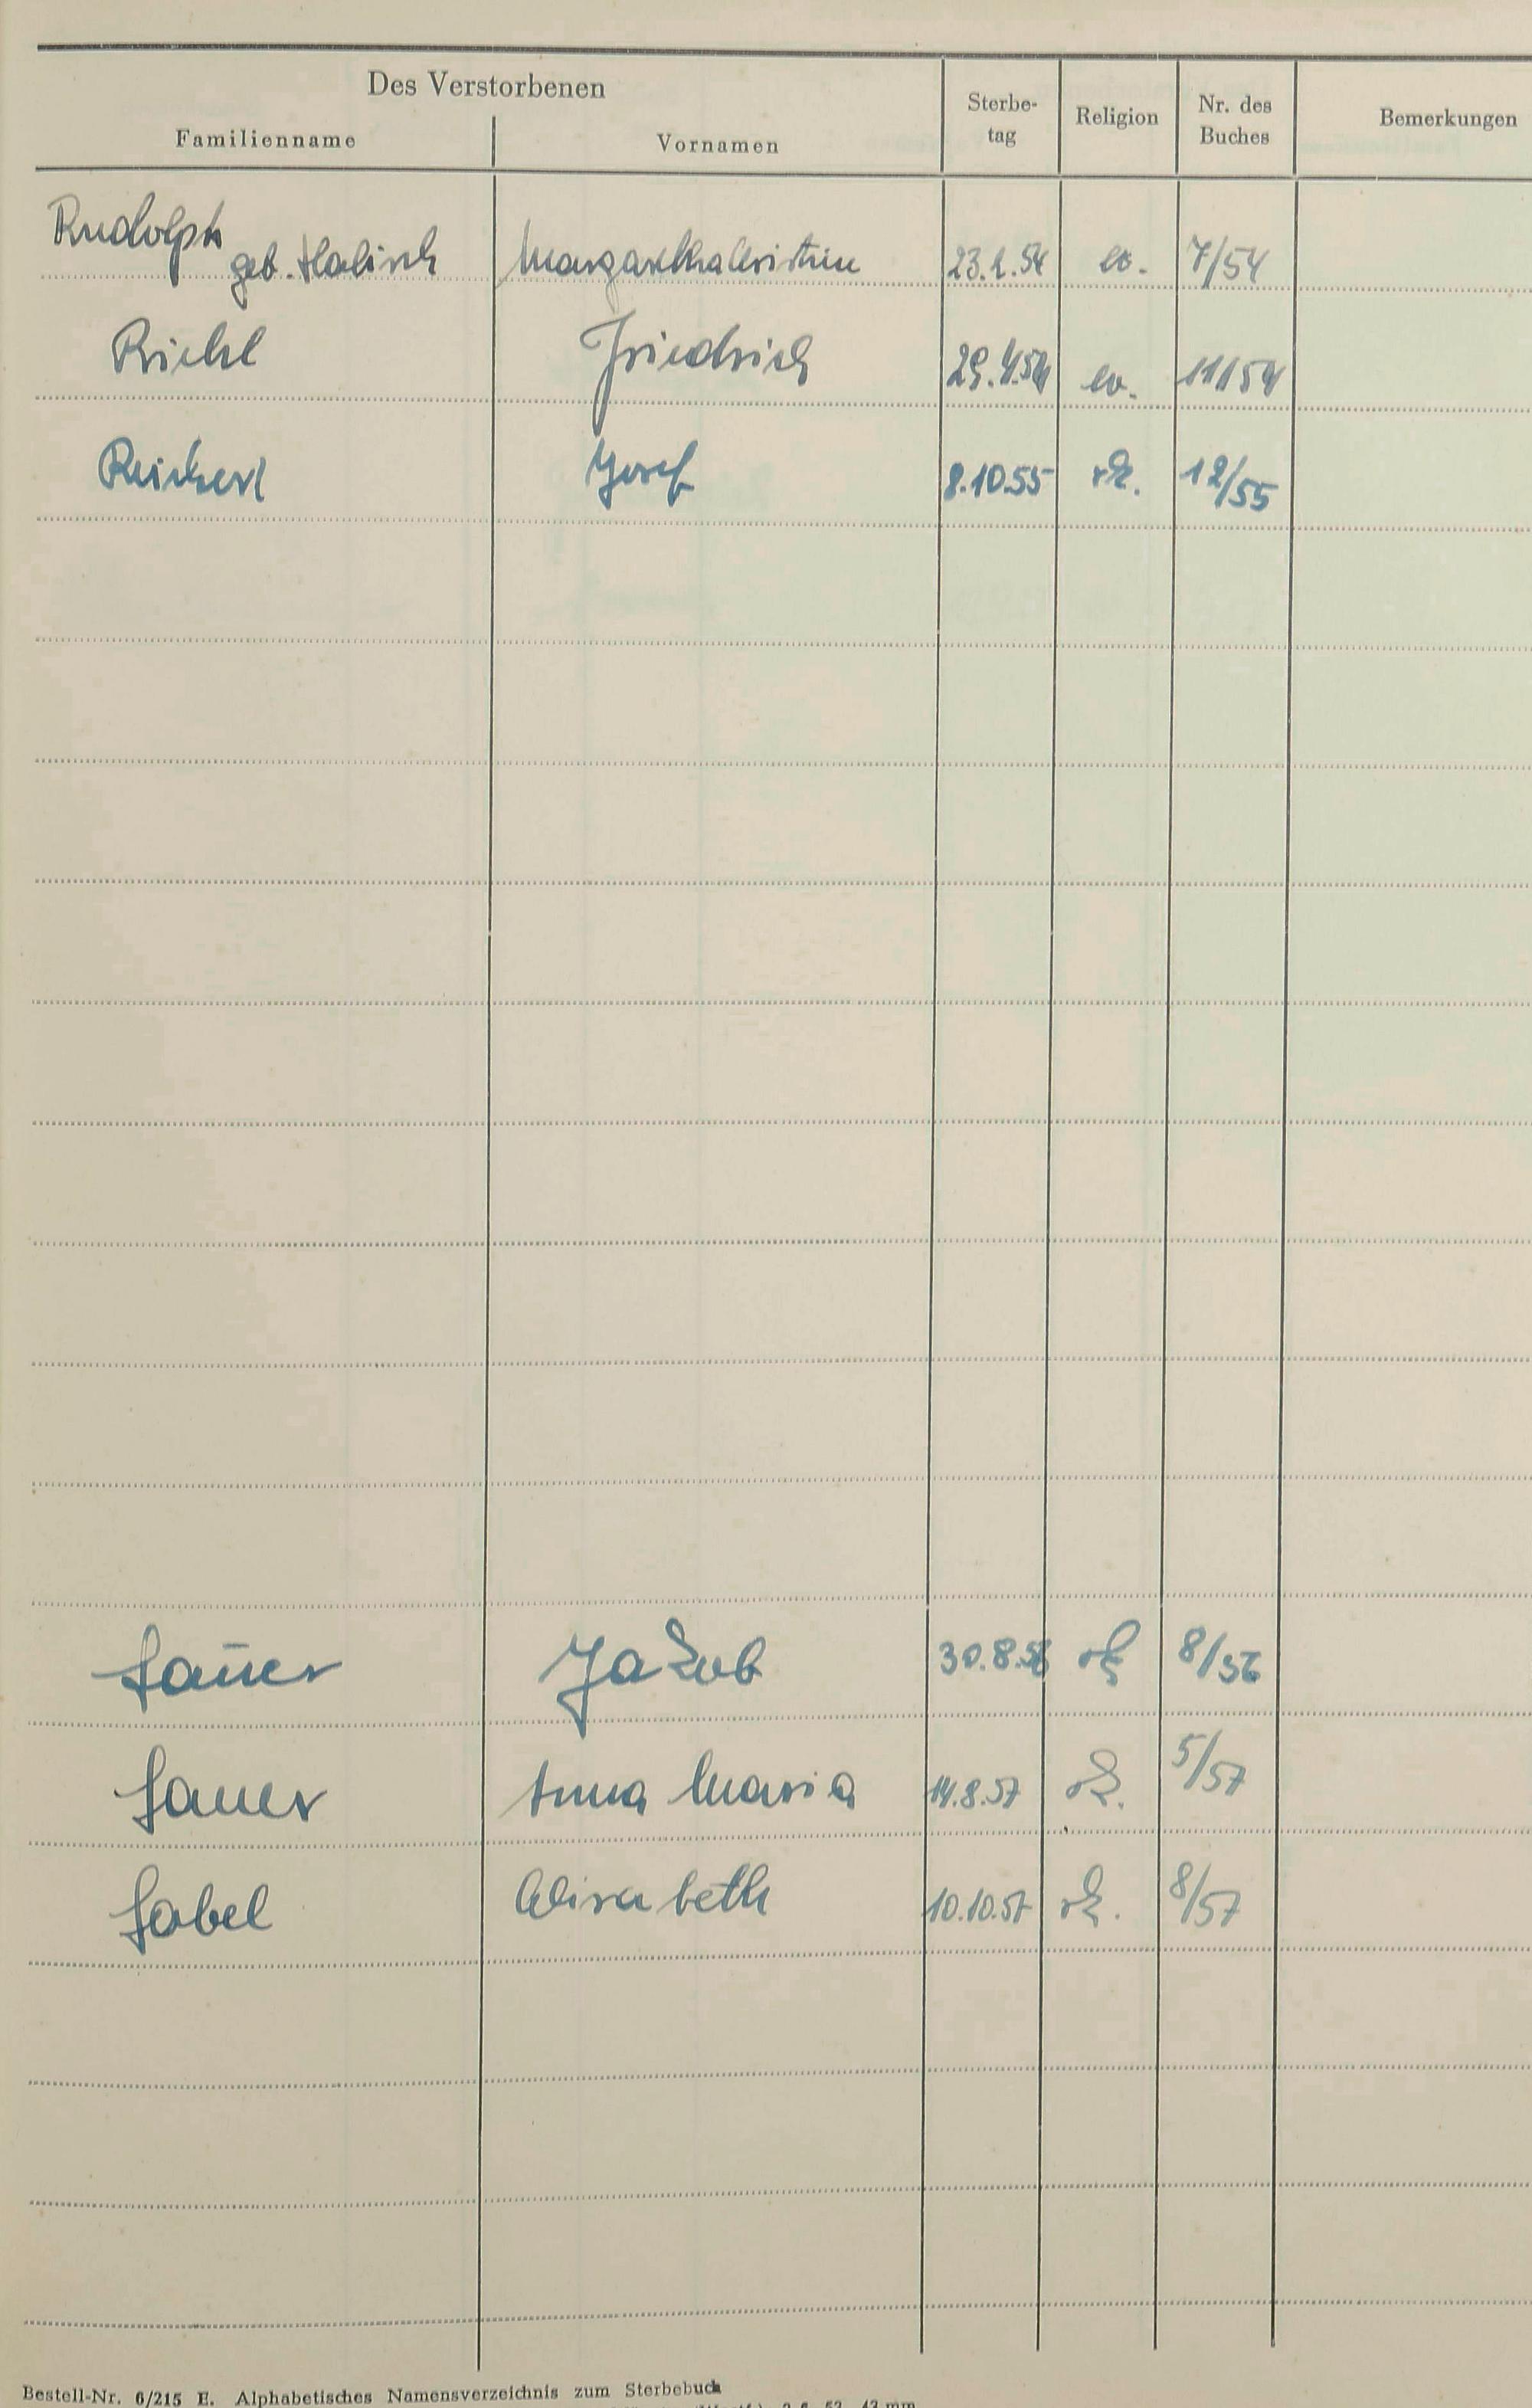 Des Verstorbenen
Familienname Vornamen Sterbe-tag Religion Nr. des Buches Bemerkungen
Rudolph
geb. Margaretha Christine 23.2.54 ev. 7/54
Riehl Friedrich 29.4.54 ev. 11/54
Reichert Josef 8.10.55 rk. 12/55
Sauer Jakob 30.8.56 rk 8/56
Sauer Anna Maria 14.8.57 rk. 5/57
Sabel Elisabeth 10.10.57 rk. 8/57
Bestell-Nr. 6/215 E. Alphabetisches Namensverzeichnis zum Sterbebuch